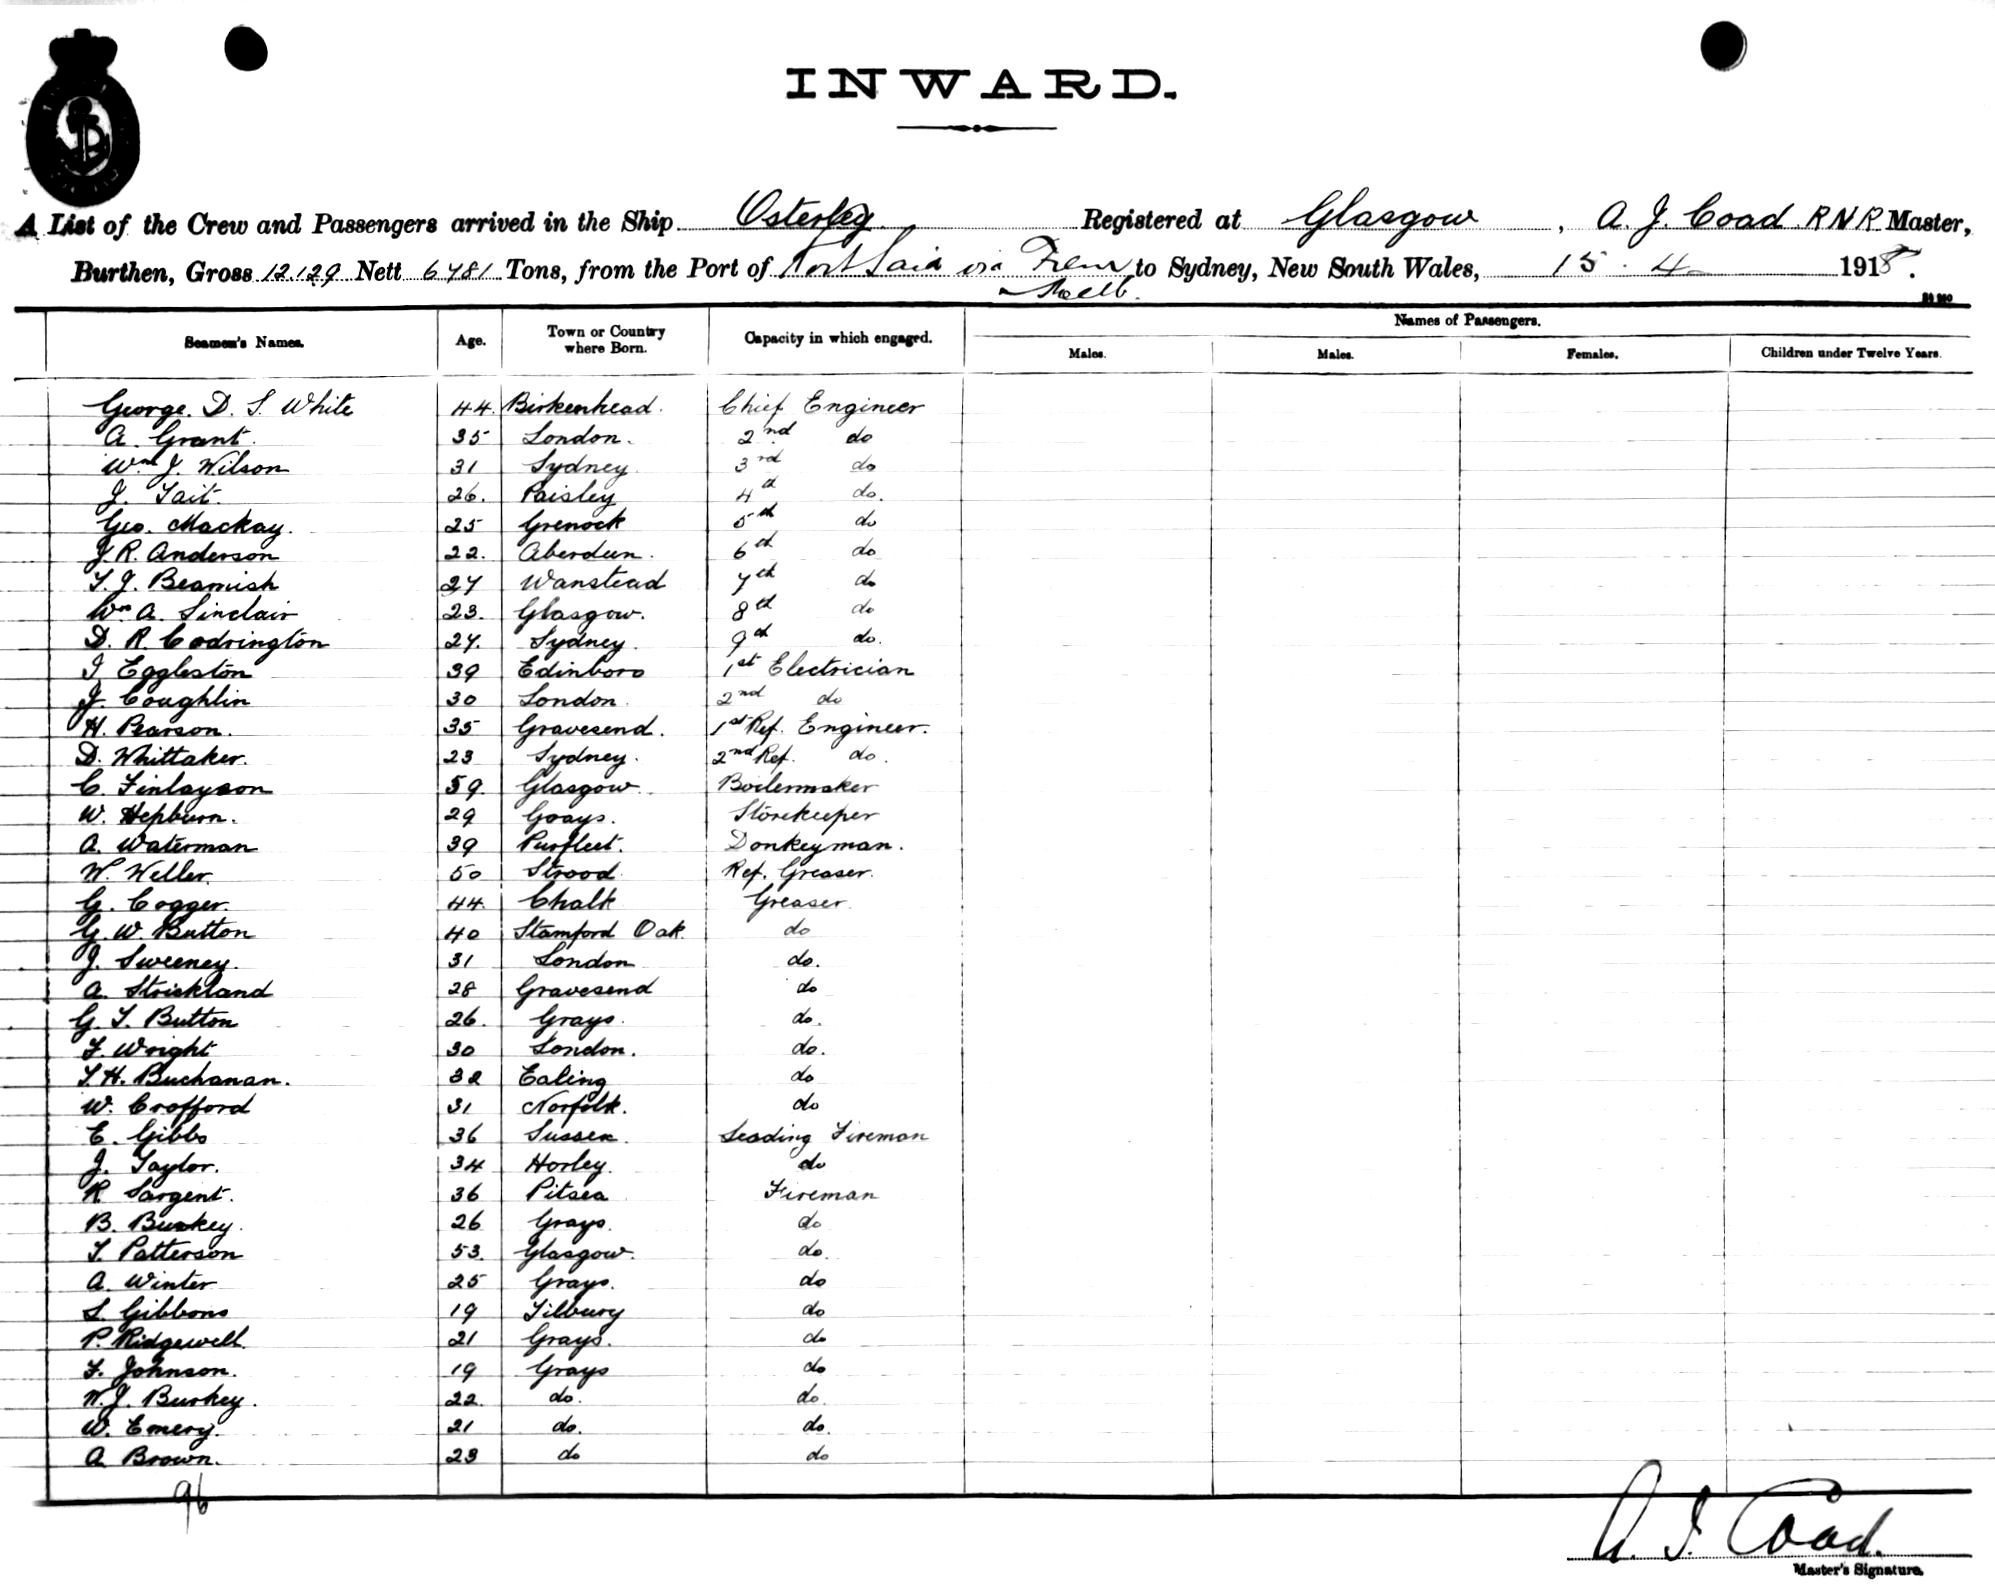 INWARD.
A List of the Crew and Passengers arrived in the Ship Osterley Registered at Glasgow, A. J. Coad RNR Master,
Burthen, Gross 12.129 Nett 6481 Tons, from the Port of Port Said via Frem to Sydney, New South Wales, 15. 4 1918.
Melb.
Names of Passengers.
Seamen's Names. Age. Town or Country where Born. Capacity in which engaged. Males. Males. Females. Children under Twelve Years.
George. D. S. White 44. Birkenhead. Chief Engineer
A. Grant. 35 London. 2nd do
Wm J. Wilson 31 Sydney 3rd do
J. Tait. 26. Paisley 4th do.
Geo. Mackay. 25 Grenock 5th do
J. R. Anderson 22. Aberdeen. 6th do
T. J. Beamish 27 Wanstead 7th do
Wm A. Sinclair 23. Glasgow. 8th do
D. R. Codrington 27. Sydney. 9th do.
I Eggleston 39 Edinboro 1st Electrician
J. Coughlin 30 London. 2nd do
H. Pearson. 35 Gravesend. 1st Ref. Engineer.
D. Whittaker. 23 Sydney. 2nd Ref. do.
C. Finlayson 59. Glasgow. Boilermaker
W. Hepburn. 29 Grays. Storekeeper
A. Waterman 39 Purfleet. Donkeyman.
W. Weller. 50 Strood. Ref. Greaser.
G. Cogger. 44. Chalk Greaser.
G. W. Button 40 Stamford Oak. do
J. Sweeney. 31 London do.
A. Strickland 28 Gravesend do
G. T. Button 26. Grays. do.
F. Wright 30 London. do.
T. H. Buchanan. 32 Ealing do
W. Crofford 31 Norfolk. do
E. Gibbs 36 Sussex. Leading Fireman
J. Taylor. 34 Horley. do
R Sargent. 36 Pitsea Fireman
B. Burkey. 26 Grays. do
T. Patterson 53. Glasgow. do.
A. Winter 25 Grays. do
S. Gibbons 19 Tilbury do
P. Ridgewell. 21 Grays. do
F. Johnson. 19 Grays do
W. J. Burkey. 22. do. do.
W. Emery. 21 do. do.
A Brown. 23 do do
96
A. J. Coad.
Master's Signature.